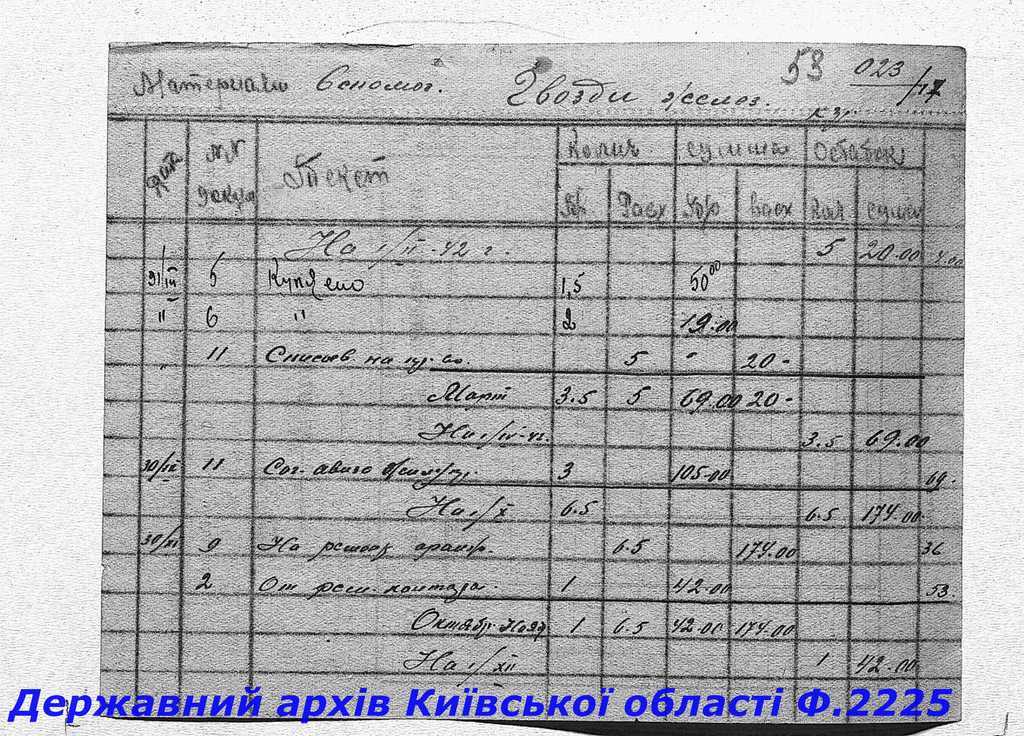 Материалы вспомог. Гвозди желез. 53 023/17
кгр.
Дата №№ докум Текст Колич Сумма Остаток
Пр Расх Пр Расх Кол Сумма
На 1/II-42 г. 5 20.00
31/III 5 Куплено 1,5 50 00
" 6 " 2 19.00
" 11 5 " 20-
Март 3.5 5 69.00 20-
На 1/IV-42. 3.5 69.00
11 Сог. авизо 3 105-00 69-
На 1/X 6.5 6.5 174.00
30/XI 9 На 6.5 174.00 36
2 От 1 42.00 53.
Октябр-Нояб 1 6.5 42.00 174.00
На 1/XII 1 42.00
Державний архів Київської області Ф.2225